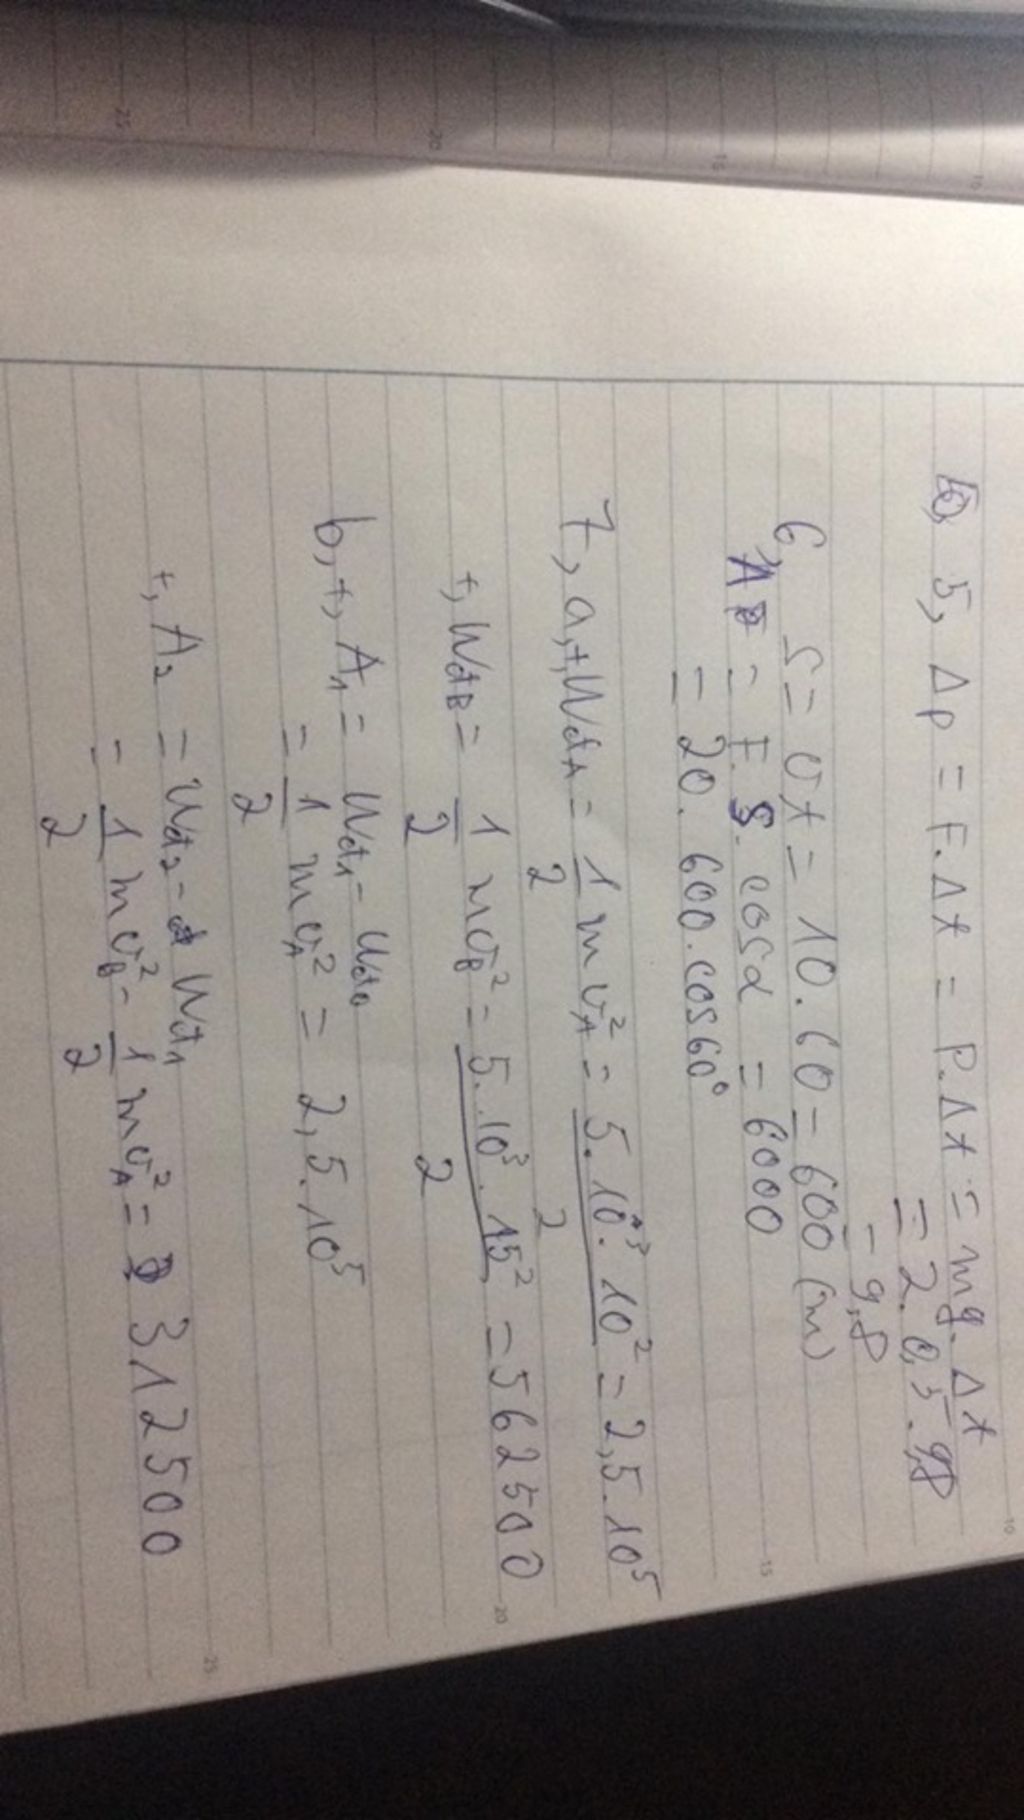 5, Δp = F.Δt = P.Δt = mg.Δt
= 2.0,5.9,8
= 9,8
6, S = vt = 10.60 = 600 (m)
A = F.S.cosα = 6000
= 20.600.cos60°
7, a, +, WđA = 1/2 mvA² = 5.10³.10²/2 = 2,5.10⁵
+, WđB = 1/2 mvB² = 5.10³.15²/2 = 562500
b, +, A₁ = Wđ1 - Wđ0
= 1/2 mvA² = 2,5.10⁵
+, A₂ = Wđ2 - Wđ1
= 1/2 mvB² - 1/2 mvA² = 312500
10
15
20
25
10
15
20
25